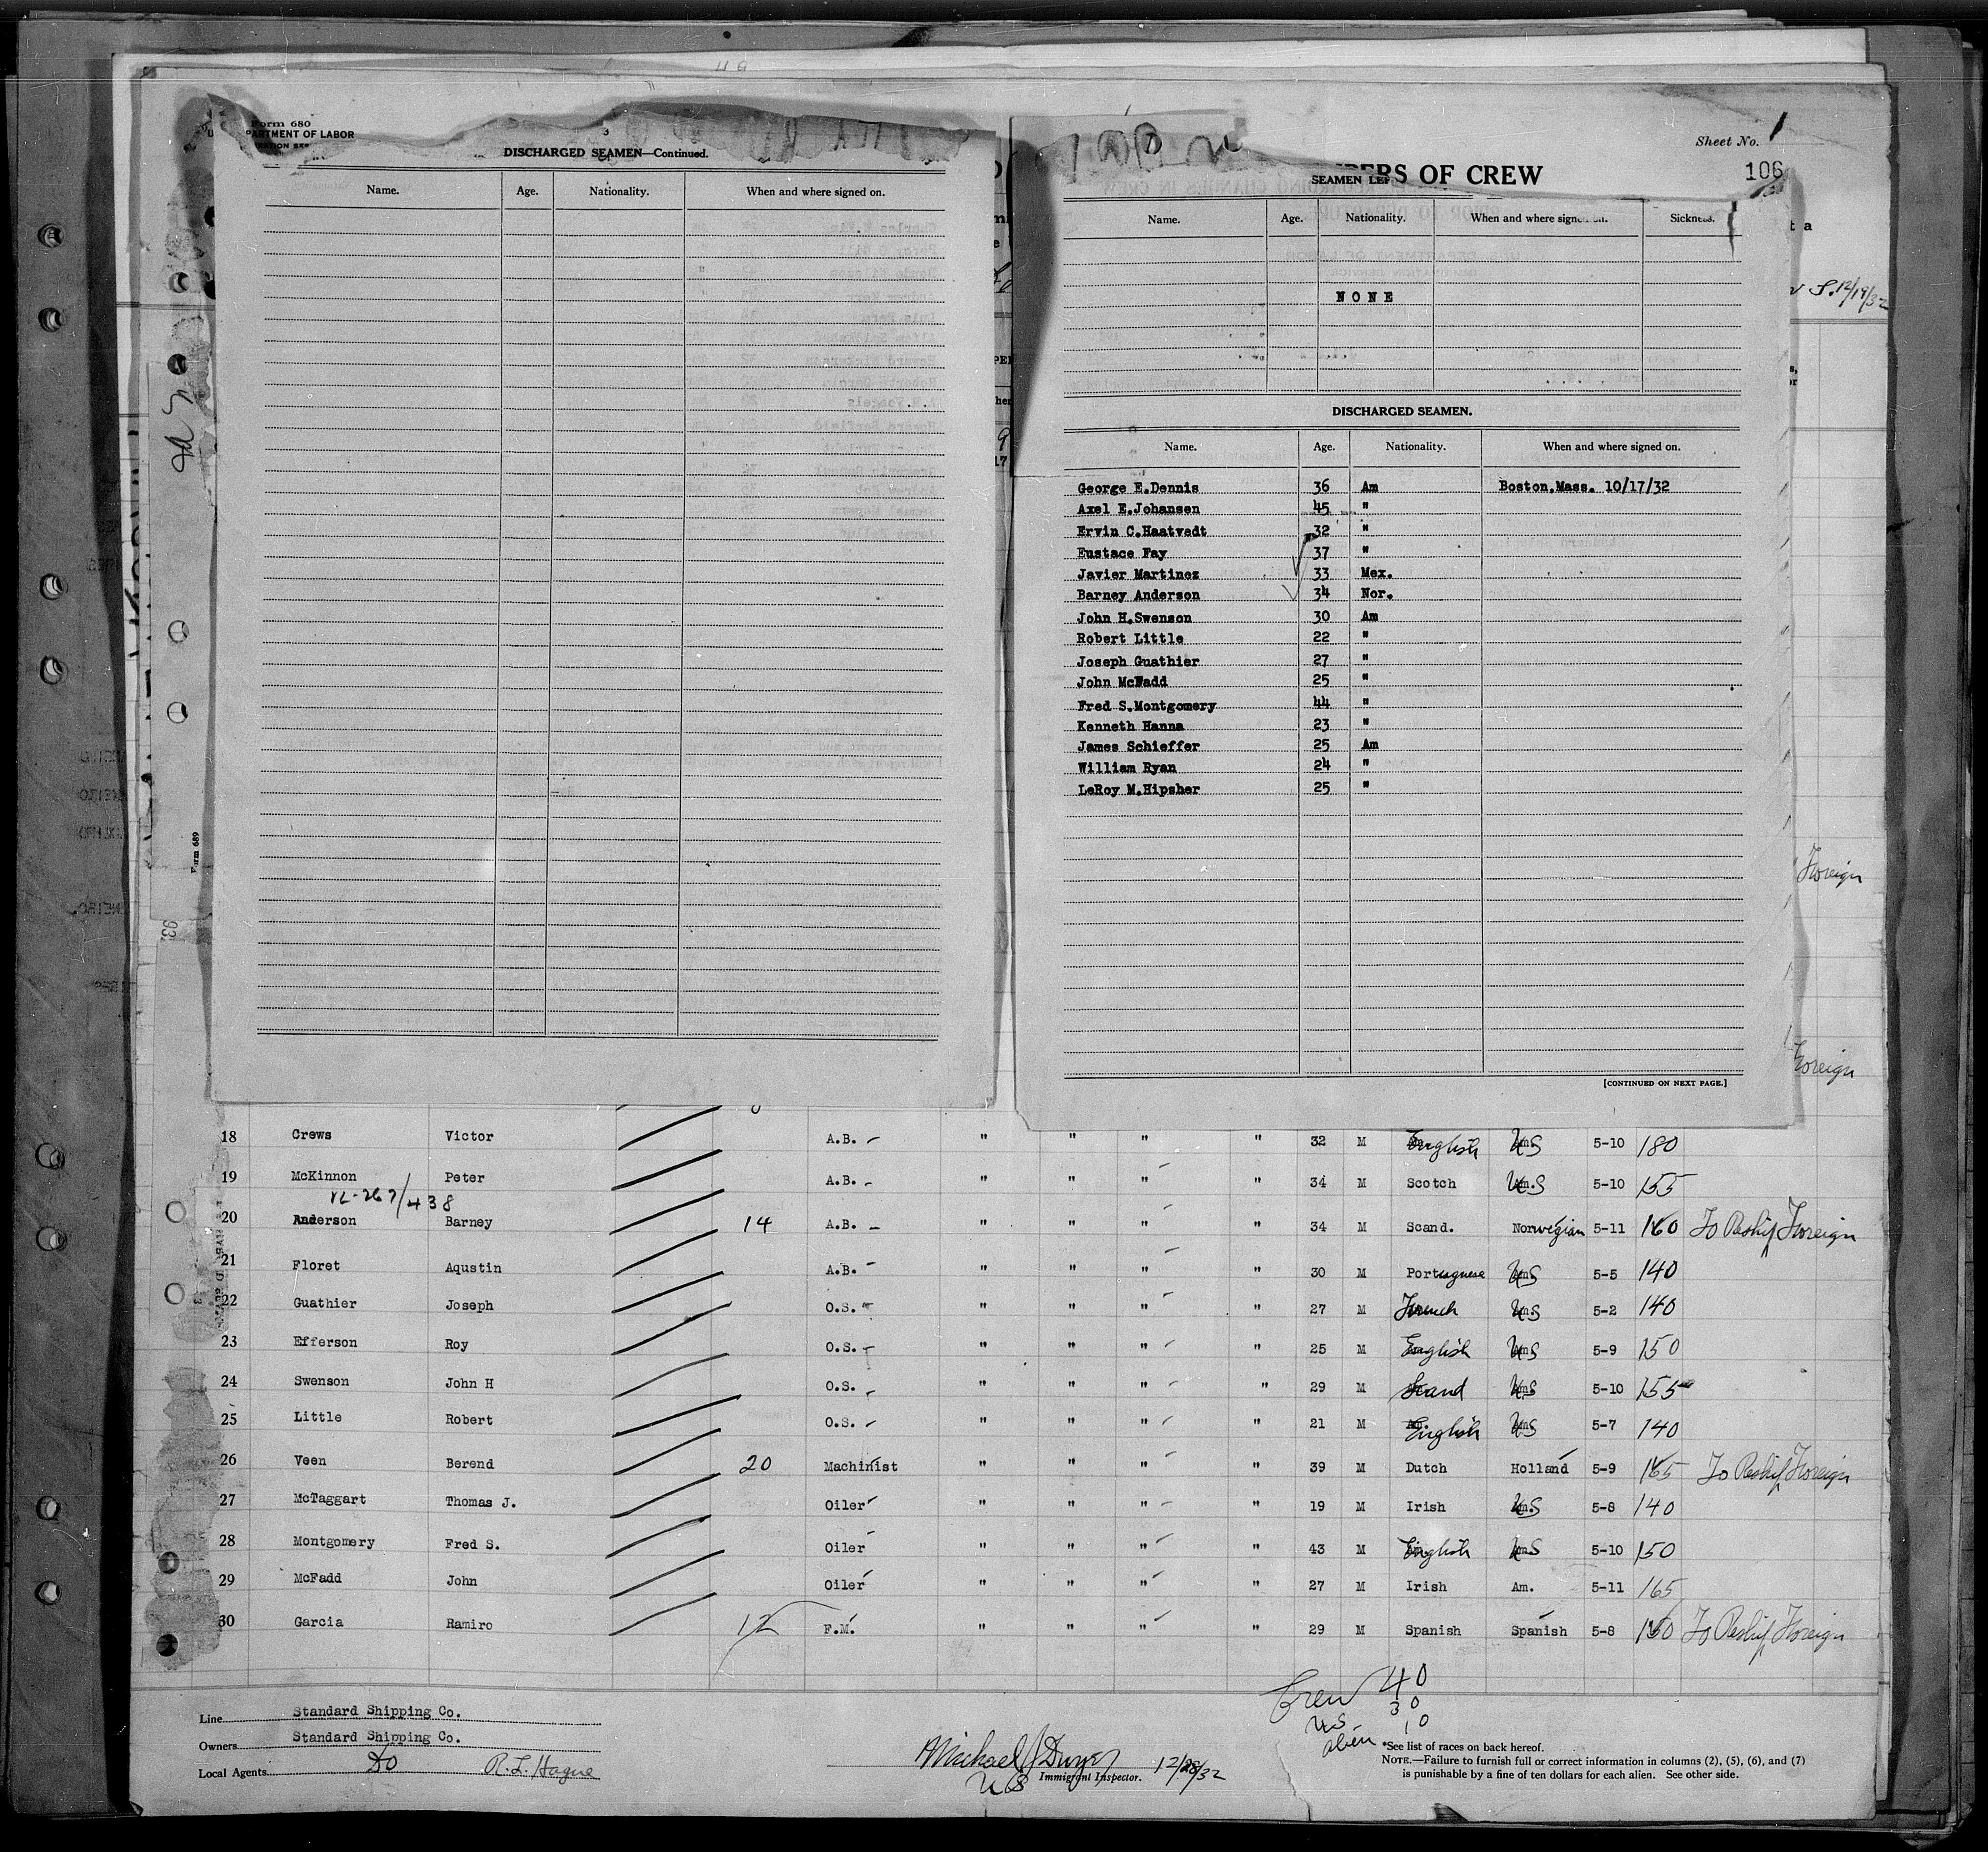 Form 680
PARTMENT OF LABOR
3
DISCHARGED SEAMEN—Continued.
Name. Age. Nationality. When and where signed on.
Form 689
Sheet No. 1
BERS OF CREW
106
SEAMEN LEF
Name. Age. Nationality. When and where signed on. Sickness.
NONE
12/19/32
DISCHARGED SEAMEN.
Name. Age. Nationality. When and where signed on.
George E.Dennis 36 Am Boston.Mass. 10/17/32
Axel E.Johansen 45 "
Ervin C.Haatvedt 32 "
Eustace Fay 37 "
Javier Martinez 33 Mex.
Barney Anderson 34 Nor.
John H.Swenson 30 Am
Robert Little 22 "
Joseph Guathier 27 "
John McFadd 25 "
Fred S.Montgomery 44 "
Kenneth Hanna 23 "
James Schieffer 25 Am
William Ryan 24 "
LeRoy M.Hipsher 25 "
Foreign
Foreign
[CONTINUED ON NEXT PAGE.]
18 Crews Victor A.B. " " " " 32 M English US 5-10 180
19 McKinnon Peter A.B. " " " " 34 M Scotch US 5-10 155
12-267/438
20 Anderson Barney 14 A.B. " " " " 34 M Scand. Norwegian 5-11 160 To Reship Foreign
21 Floret Aqustin A.B. " " " " 30 M Portuguese US 5-5 140
22 Guathier Joseph O.S. " " " " 27 M French US 5-2 140
23 Efferson Roy O.S. " " " " 25 M English US 5-9 150
24 Swenson John H O.S. " " " " 29 M Scand US 5-10 155
25 Little Robert O.S. " " " " 21 M English US 5-7 140
26 Veen Berend 20 Machinist " " " " 39 M Dutch Holland 5-9 165 To Reship Foreign
27 McTaggart Thomas J. Oiler " " " " 19 M Irish US 5-8 140
28 Montgomery Fred S. Oiler " " " " 43 M English US 5-10 150
29 McFadd John Oiler " " " " 27 M Irish Am. 5-11 165
30 Garcia Ramiro 12 F.M. " " " " 29 M Spanish Spanish 5-8 160 To Reship Foreign
Crew 40
US 30
alien 10
Line Standard Shipping Co.
Owners Standard Shipping Co.
Local Agents Do R.L. Hague
Michael J Dwyer 12/28/32
US Immigrant Inspector.
*See list of races on back hereof.
NOTE.—Failure to furnish full or correct information in columns (2), (5), (6), and (7)
is punishable by a fine of ten dollars for each alien. See other side.